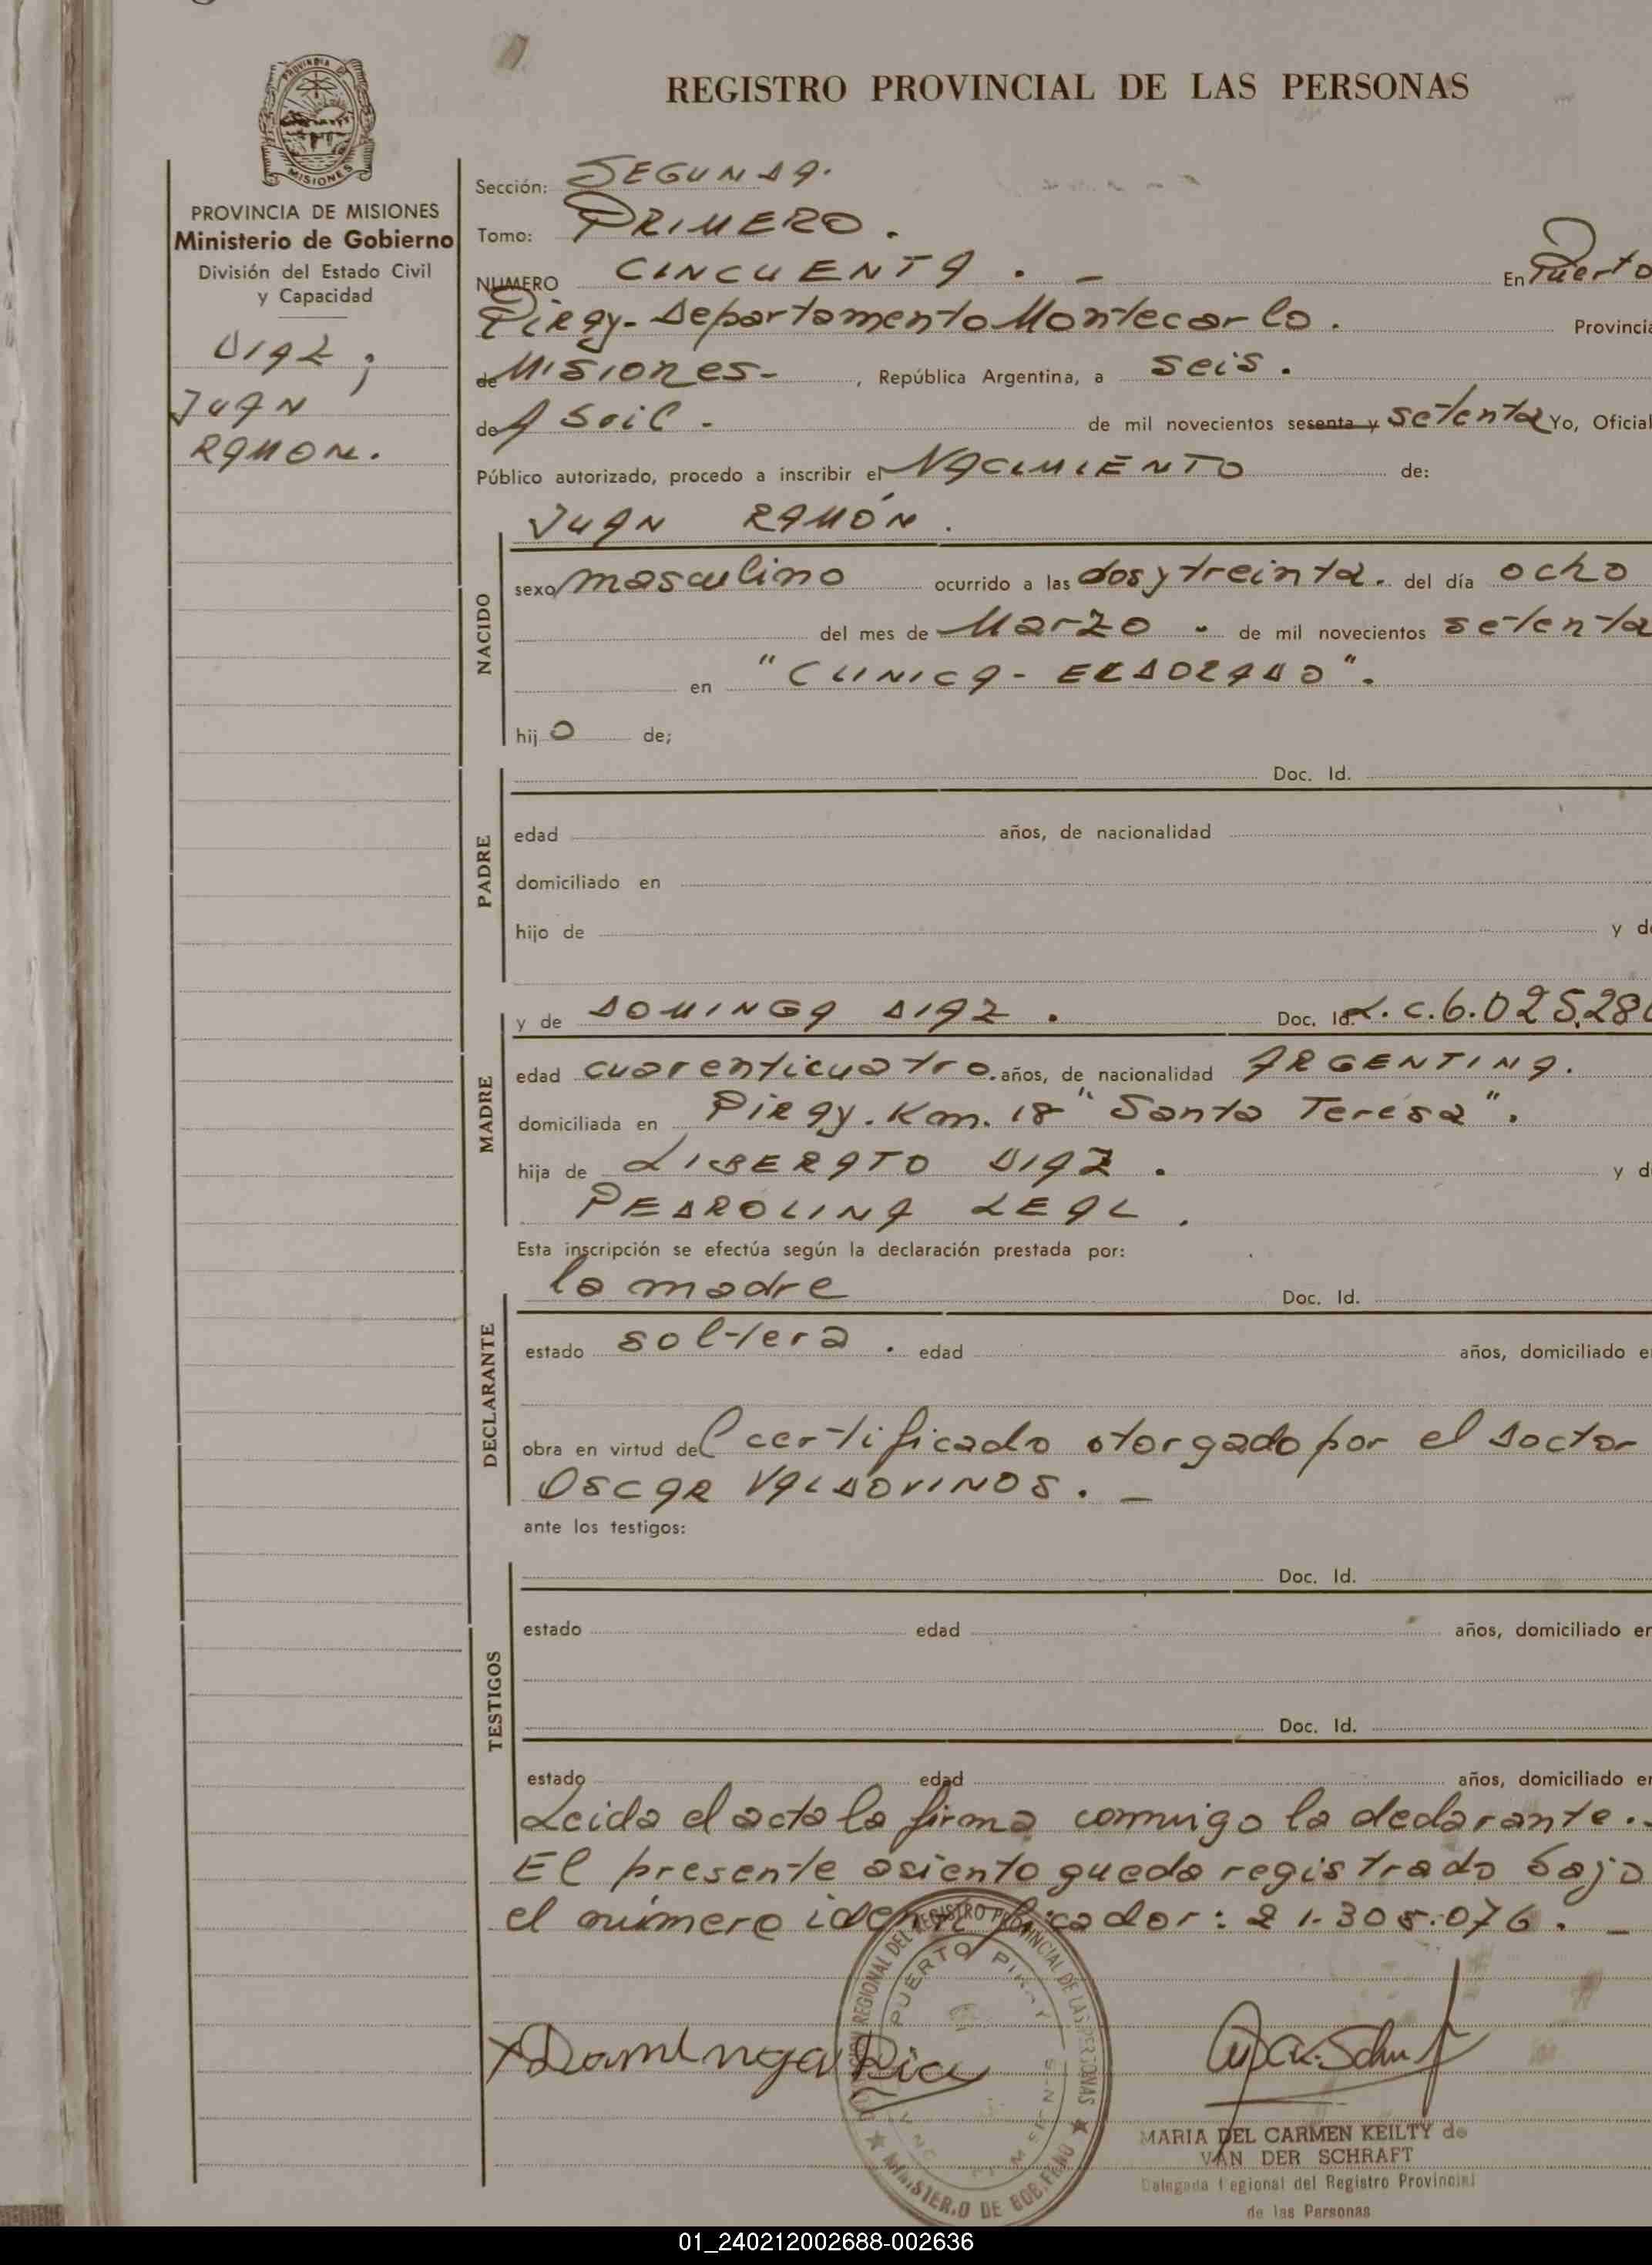 REGISTRO PROVINCIAL DE LAS PERSONAS
PROVINCIA DE MISIONES
Ministerio de Gobierno
División del Estado Civil
y Capacidad
DIAZ;
JUAN
RAMON.
Sección: SEGUNDA.
Tomo: PRIMERO.
NUMERO CINCUENTA. - En Puerto
Piray- Departamento Montecarlo. Provincia
de Misiones- , República Argentina, a seis.
de Abril. de mil novecientos sesenta y setenta Yo, Oficial
Público autorizado, procedo a inscribir el NACIMIENTO de:
JUAN RAMÓN.
NACIDO
sexo masculino ocurrido a las dos y treinta. del día ocho
del mes de Marzo - de mil novecientos setenta
en "CLINICA - ELDORADO".
hijo de;
PADRE
Doc. Id.
edad años, de nacionalidad
domiciliado en
hijo de y de
MADRE
y de DOMINGA DIAZ. Doc. Id. L.C. 6.025.28
edad cuarenticuatro. años, de nacionalidad ARGENTINA.
domiciliada en Piray. Km. 18 "Santa Teresa".
hija de LIBERATO DIAZ. y d
PEDROLINA LEAL.
Esta inscripción se efectúa según la declaración prestada por:
DECLARANTE
la madre Doc. Id.
estado soltera. edad años, domiciliado e
obra en virtud del certificado otorgado por el Doctor
OSCAR VALDOVINOS. -
ante los testigos:
TESTIGOS
Doc. Id.
estado edad años, domiciliado en
Doc. Id.
estado edad años, domiciliado en
Leida el acta la firma conmigo la declarante.-
El presente asiento queda registrado bajo
el número identificador: 21.305.076. -
DELEGACION REGIONAL DEL REGISTRO PROVINCIAL DE LAS PERSONAS
PUERTO PIRAY
MINISTERIO DE GOBIERNO
x Daminga Diaz
MARIA DEL CARMEN KEILTY de
VAN DER SCHRAFT
Delegada Regional del Registro Provincial
de las Personas
01_240212002688-002636